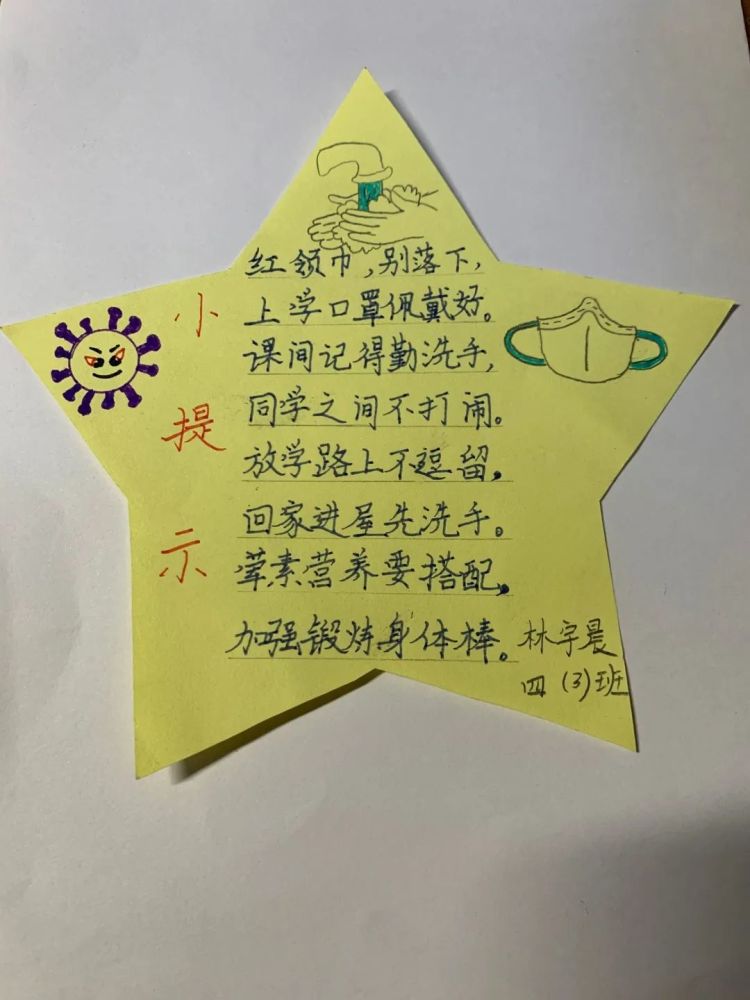 小提示
红领巾,别落下,
上学口罩佩戴好。
课间记得勤洗手,
同学之间不打闹。
放学路上不逗留,
回家进屋先洗手。
荤素营养要搭配,
加强锻炼身体棒。
林宇晨
四(3)班